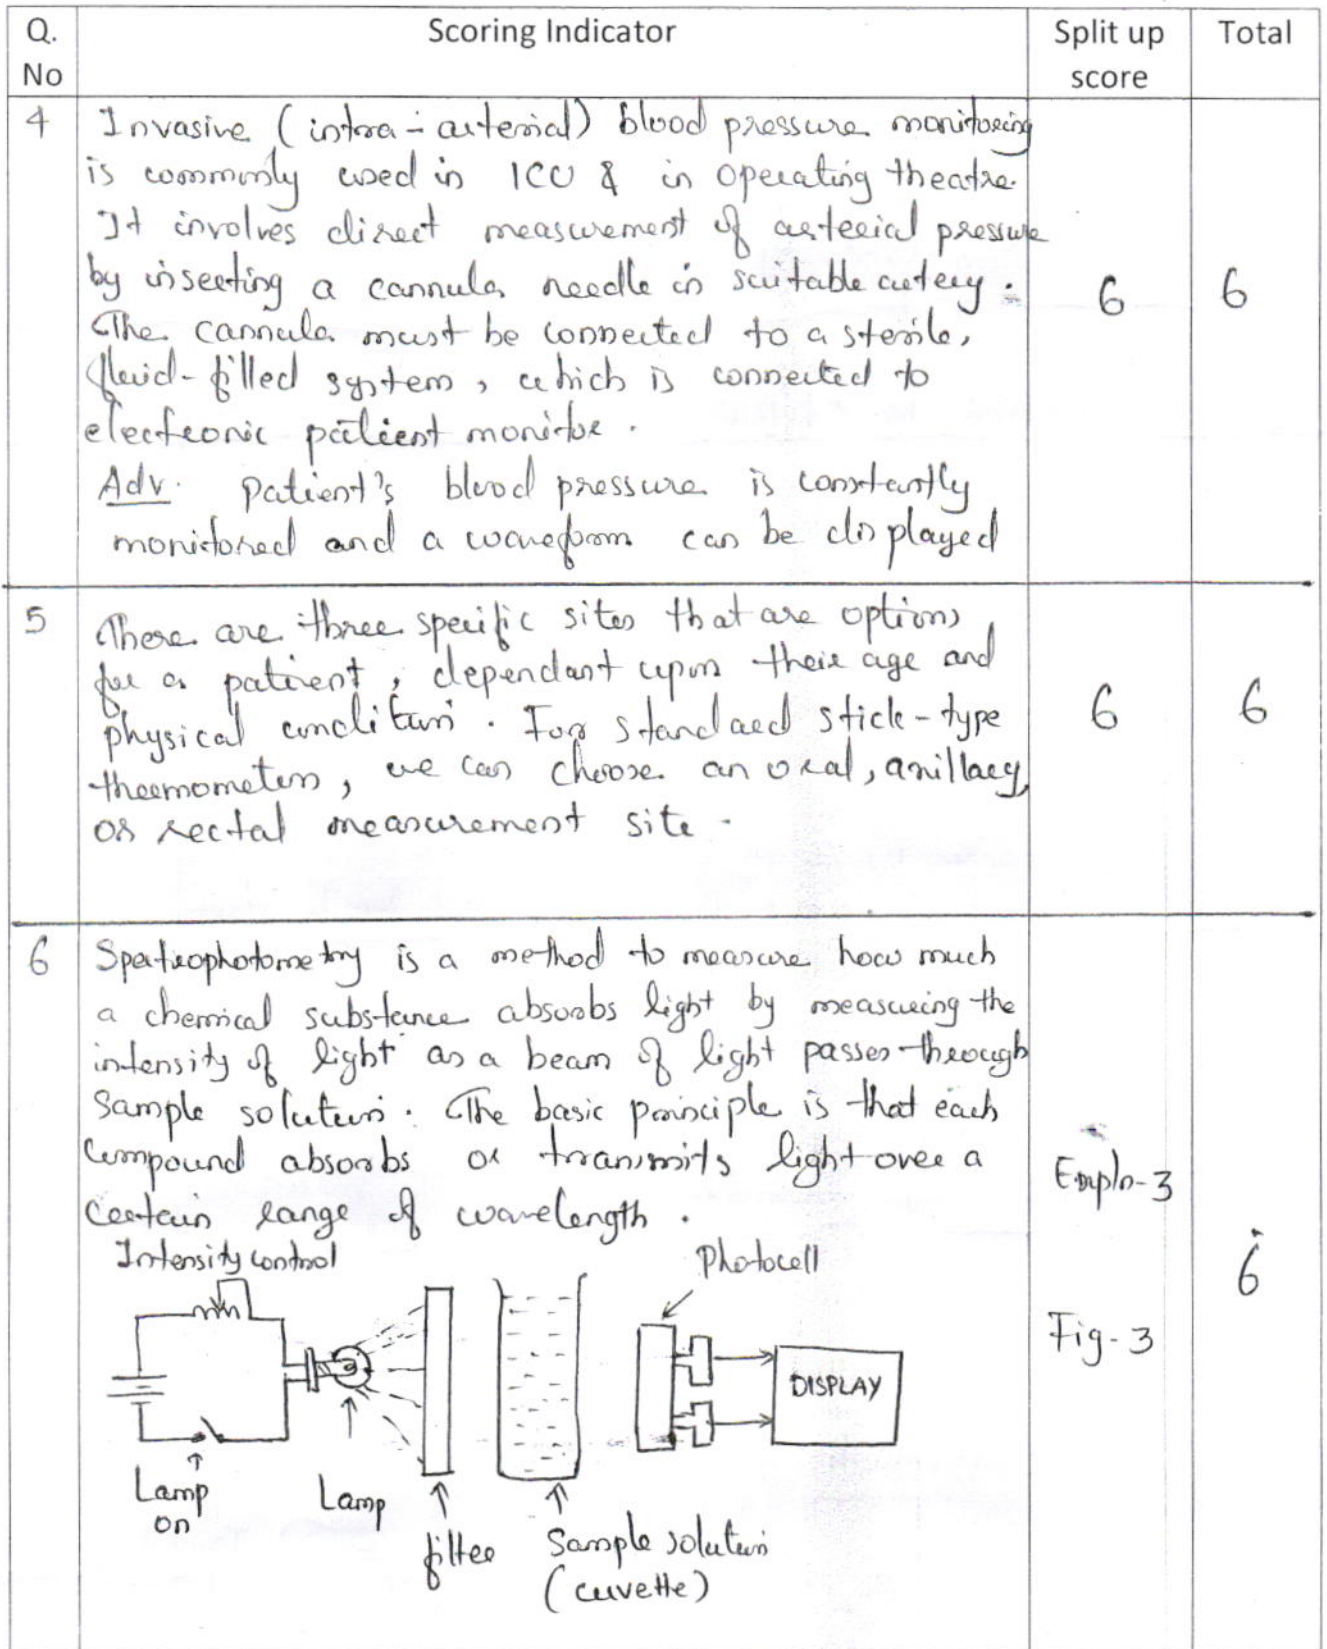 Q. No Scoring Indicator Split up score Total
4 Invasive (intra-arterial) blood pressure monitoring
is commonly used in ICU & in operating theatre.
It involves direct measurement of arterial pressure
by inserting a cannula needle in suitable artery.
The cannula must be connected to a sterile,
fluid-filled system, which is connected to
electronic patient monitor.
Adv. Patient's blood pressure is constantly
monitored and a waveform can be displayed
6 6
5 There are three specific sites that are options
for a patient, dependant upon their age and
physical condition. For standard stick-type
thermometers, we can choose an oral, axillary,
or rectal measurement site.
6 6
6 Spectrophotometry is a method to measure how much
a chemical substance absorbs light by measuring the
intensity of light as a beam of light passes through
Sample solution. The basic principle is that each
compound absorbs or transmits light over a
certain range of wavelength.
Expln-3
Fig-3
6
Intensity control
Photocell
DISPLAY
Lamp on
Lamp
filter
Sample solution
(cuvette)